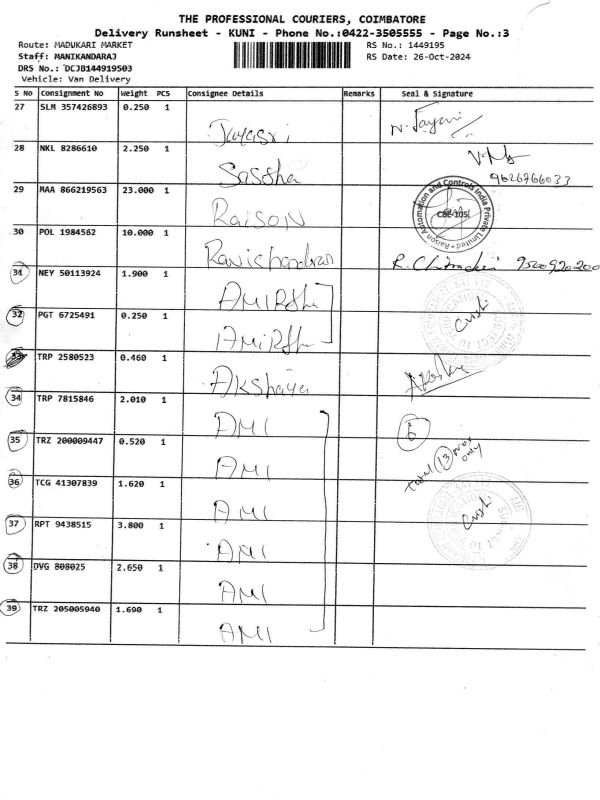 THE PROFESSIONAL COURIERS, COIMBATORE
Delivery Runsheet - KUNI - Phone No.:0422-3505555 - Page No.:3
Route: MADUKARI MARKET RS No.: 1449195
Staff: MANIKANDARAJ RS Date: 26-Oct-2024
DRS No.: DCJB144919503
Vehicle: Van Delivery
S No Consignment No Weight PCS Consignee Details Remarks Seal & Signature
27 SLM 357426893 0.250 1
Jayasri
28 NKL 8286610 2.250 1
Sasdha 9626766033
29 MAA 866219563 23.000 1
RAISON
Raison Automation and Controls India Private Limited
CBE-105
30 POL 1984562 10.000 1
Ravichandran
31 NEY 50113924 1.900 1
32 PGT 6725491 0.250 1
33 TRP 2580523 0.460 1
AKshaya
34 TRP 7815846 2.010 1
AMI 6
35 TRZ 200009447 0.520 1
Total 13 only
AMI
36 TCG 41307839 1.620 1
AMI
37 RPT 9438515 3.800 1
AMI
38 DVG 808025 2.650 1
AMI
39 TRZ 205005940 1.690 1
AMI